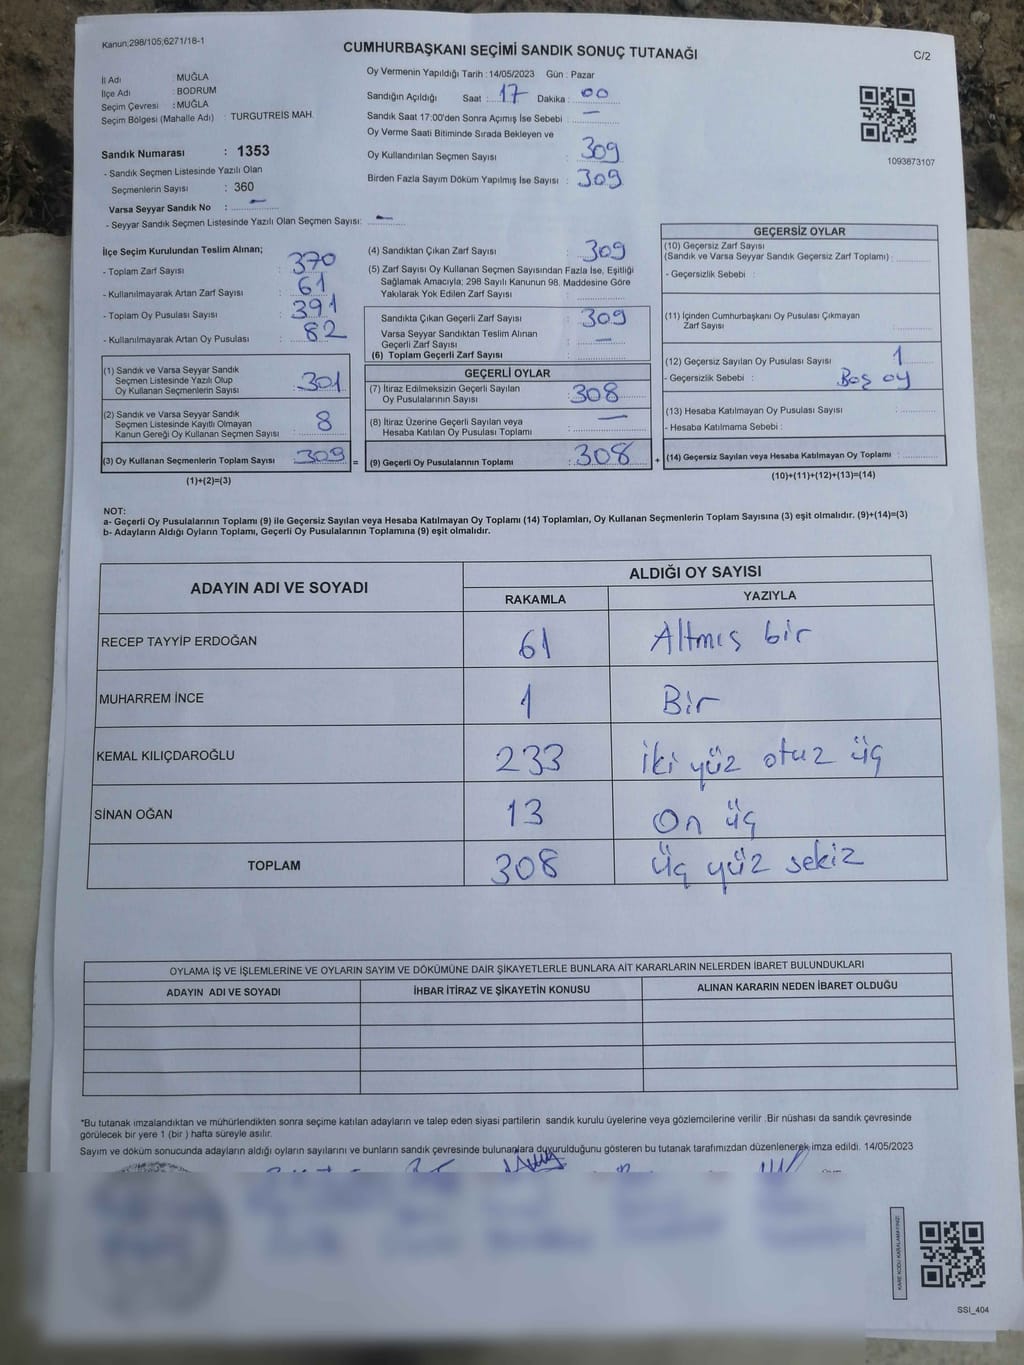 Kanun;298/105;6271/18-1
CUMHURBAŞKANI SEÇİMİ SANDIK SONUÇ TUTANAĞI
C/2
İl Adı : MUĞLA
İlçe Adı : BODRUM
Seçim Çevresi : MUĞLA
Seçim Bölgesi (Mahalle Adı) : TURGUTREİS MAH.
Sandık Numarası : 1353
- Sandık Seçmen Listesinde Yazılı Olan
Seçmenlerin Sayısı : 360
Varsa Seyyar Sandık No : -
- Seyyar Sandık Seçmen Listesinde Yazılı Olan Seçmen Sayısı: -
Oy Vermenin Yapıldığı Tarih : 14/05/2023 Gün : Pazar
Sandığın Açıldığı Saat : 17 Dakika : 00
Sandık Saat 17:00'den Sonra Açımış İse Sebebi : -
Oy Verme Saati Bitiminde Sırada Bekleyen ve
Oy Kullandırılan Seçmen Sayısı : 309
Birden Fazla Sayım Döküm Yapılmış İse Sayısı : 309
1093873107
İlçe Seçim Kurulundan Teslim Alınan;
- Toplam Zarf Sayısı : 370
- Kullanılmayarak Artan Zarf Sayısı : 61
- Toplam Oy Pusulası Sayısı : 391
- Kullanılmayarak Artan Oy Pusulası : 82
(1) Sandık ve Varsa Seyyar Sandık
Seçmen Listesinde Yazılı Olup
Oy Kullanan Seçmenlerin Sayısı : 301
(2) Sandık ve Varsa Seyyar Sandık
Seçmen Listesinde Kayıtlı Olmayan
Kanun Gereği Oy Kullanan Seçmen Sayısı : 8
(3) Oy Kullanan Seçmenlerin Toplam Sayısı : 309 =
(1)+(2)=(3)
(4) Sandıktan Çıkan Zarf Sayısı : 309
(5) Zarf Sayısı Oy Kullanan Seçmen Sayısından Fazla İse, Eşitliği
Sağlamak Amacıyla; 298 Sayılı Kanunun 98. Maddesine Göre
Yakılarak Yok Edilen Zarf Sayısı :
Sandıkta Çıkan Geçerli Zarf Sayısı : 309
Varsa Seyyar Sandıktan Teslim Alınan
Geçerli Zarf Sayısı : -
(6) Toplam Geçerli Zarf Sayısı :
GEÇERLİ OYLAR
(7) İtiraz Edilmeksizin Geçerli Sayılan
Oy Pusulalarının Sayısı : 308
(8) İtiraz Üzerine Geçerli Sayılan veya
Hesaba Katılan Oy Pusulası Toplamı : -
(9) Geçerli Oy Pusulalarının Toplamı : 308 +
GEÇERSİZ OYLAR
(10) Geçersiz Zarf Sayısı
(Sandık ve Varsa Seyyar Sandık Geçersiz Zarf Toplamı) :
- Geçersizlik Sebebi :
(11) İçinden Cumhurbaşkanı Oy Pusulası Çıkmayan
Zarf Sayısı :
(12) Geçersiz Sayılan Oy Pusulası Sayısı : 1
- Geçersizlik Sebebi : Boş oy
(13) Hesaba Katılmayan Oy Pusulası Sayısı :
- Hesaba Katılmama Sebebi :
(14) Geçersiz Sayılan veya Hesaba Katılmayan Oy Toplamı :
(10)+(11)+(12)+(13)=(14)
NOT:
a- Geçerli Oy Pusulalarının Toplamı (9) ile Geçersiz Sayılan veya Hesaba Katılmayan Oy Toplamı (14) Toplamları, Oy Kullanan Seçmenlerin Toplam Sayısına (3) eşit olmalıdır. (9)+(14)=(3)
b- Adayların Aldığı Oyların Toplamı, Geçerli Oy Pusulalarının Toplamına (9) eşit olmalıdır.
ADAYIN ADI VE SOYADI ALDIĞI OY SAYISI
RAKAMLA YAZIYLA
RECEP TAYYİP ERDOĞAN 61 Altmış bir
MUHARREM İNCE 1 Bir
KEMAL KILIÇDAROĞLU 233 iki yüz otuz üç
SİNAN OĞAN 13 On üç
TOPLAM 308 üç yüz sekiz
OYLAMA İŞ VE İŞLEMLERİNE VE OYLARIN SAYIM VE DÖKÜMÜNE DAİR ŞİKAYETLERLE BUNLARA AİT KARARLARIN NELERDEN İBARET BULUNDUKLARI
ADAYIN ADI VE SOYADI İHBAR İTİRAZ VE ŞİKAYETİN KONUSU ALINAN KARARIN NEDEN İBARET OLDUĞU
*Bu tutanak imzalandıktan ve mühürlendikten sonra seçime katılan adayların ve talep eden siyasi partilerin sandık kurulu üyelerine veya gözlemcilerine verilir .Bir nüshası da sandık çevresinde
görülecek bir yere 1 (bir ) hafta süreyle asılır.
Sayım ve döküm sonucunda adayların aldığı oyların sayılarını ve bunların sandık çevresinde bulunanlara duyurulduğunu gösteren bu tutanak tarafımızdan düzenlenerek imza edildi. 14/05/2023
SSI_404